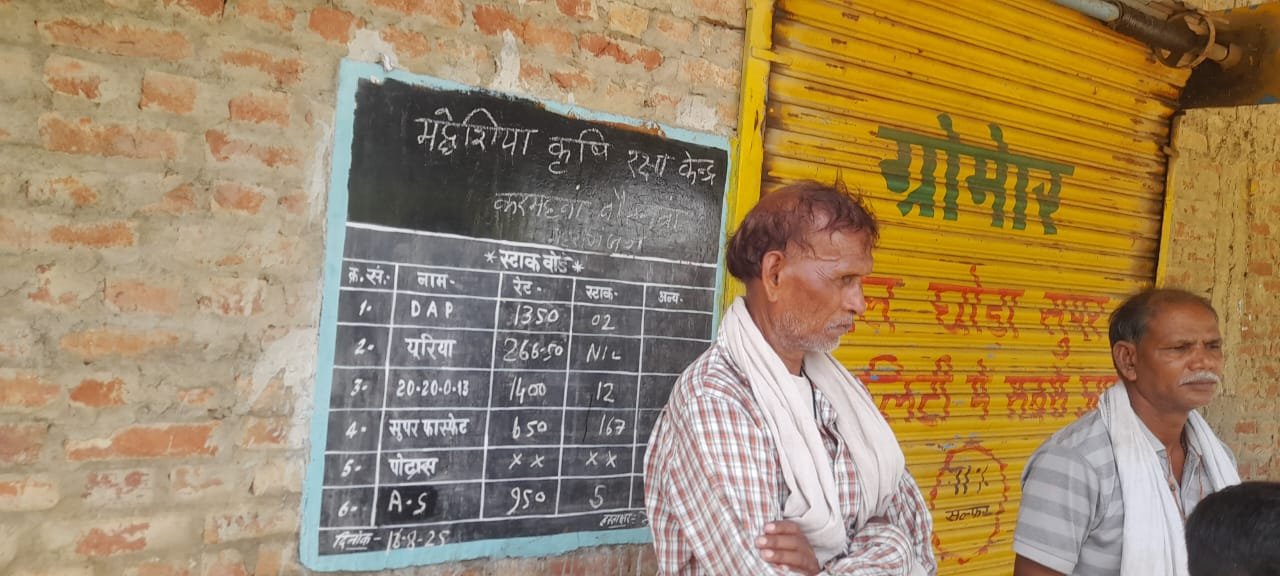 मद्धेशिया कृषि रक्षा केन्द्र
करमहवां
*स्टाक बोर्ड*
क्र.सं. नाम- रेट- स्टाक- अन्य-
1. DAP 1350 02
2. यूरिया 266-50 NIL
3. 20-20-0-13 1400 12
4. सुपर फास्फेट 650 167
5. पोटास ×× ××
6. A-S 950 5
हस्ताक्षर-
दिनांक- 18-8-25
ग्रोमोर
घोड़ा सुपर
में
सल्फर